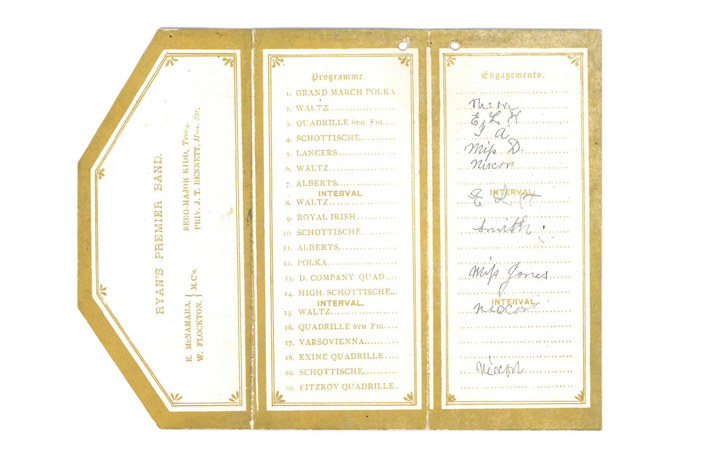 RYAN'S PREMIER BAND.
E. McNAMARA, } M.C's.
W. FLOCKTON,
SERG-MAJOR KIDD, Treas.
PRIV. J. T. BENNETT, Hon. Sec.
Programme.
1. GRAND MARCH POLKA
2. WALTZ
3. QUADRILLE 6TH FIG
4. SCHOTTISCHE
5. LANCERS
6. WALTZ
7. ALBERTS
INTERVAL
8. WALTZ
9. ROYAL IRISH
10. SCHOTTISCHE
11. ALBERTS
12. POLKA
13. D. COMPANY QUAD
14. HIGH. SCHOTTISCHE
INTERVAL.
15. WALTZ
16. QUADRILLE 6TH FIG
17. VARSOVIENNA
18. EXINE QUADRILLE
19. SCHOTTISCHE
20. FITZROY QUADRILLE
Engagements.
Miss D.
Nixon
INTERVAL
Smith
Miss Jones
INTERVAL
Nixon